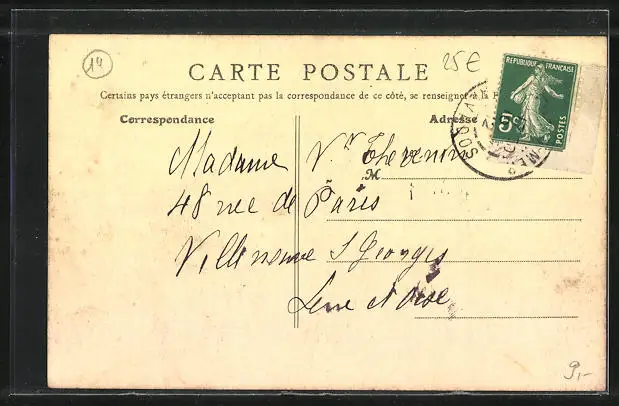 14
25€
CARTE POSTALE
Certains pays étrangers n'acceptant pas la correspondance de ce côté, se renseigner à la
REPUBLIQUE FRANÇAISE
5c
POSTES
Correspondance
Adresse
Madame Vve Thevenin
M
48 rue de Paris
Villeneuve St Georges
Seine et Oise
9,-